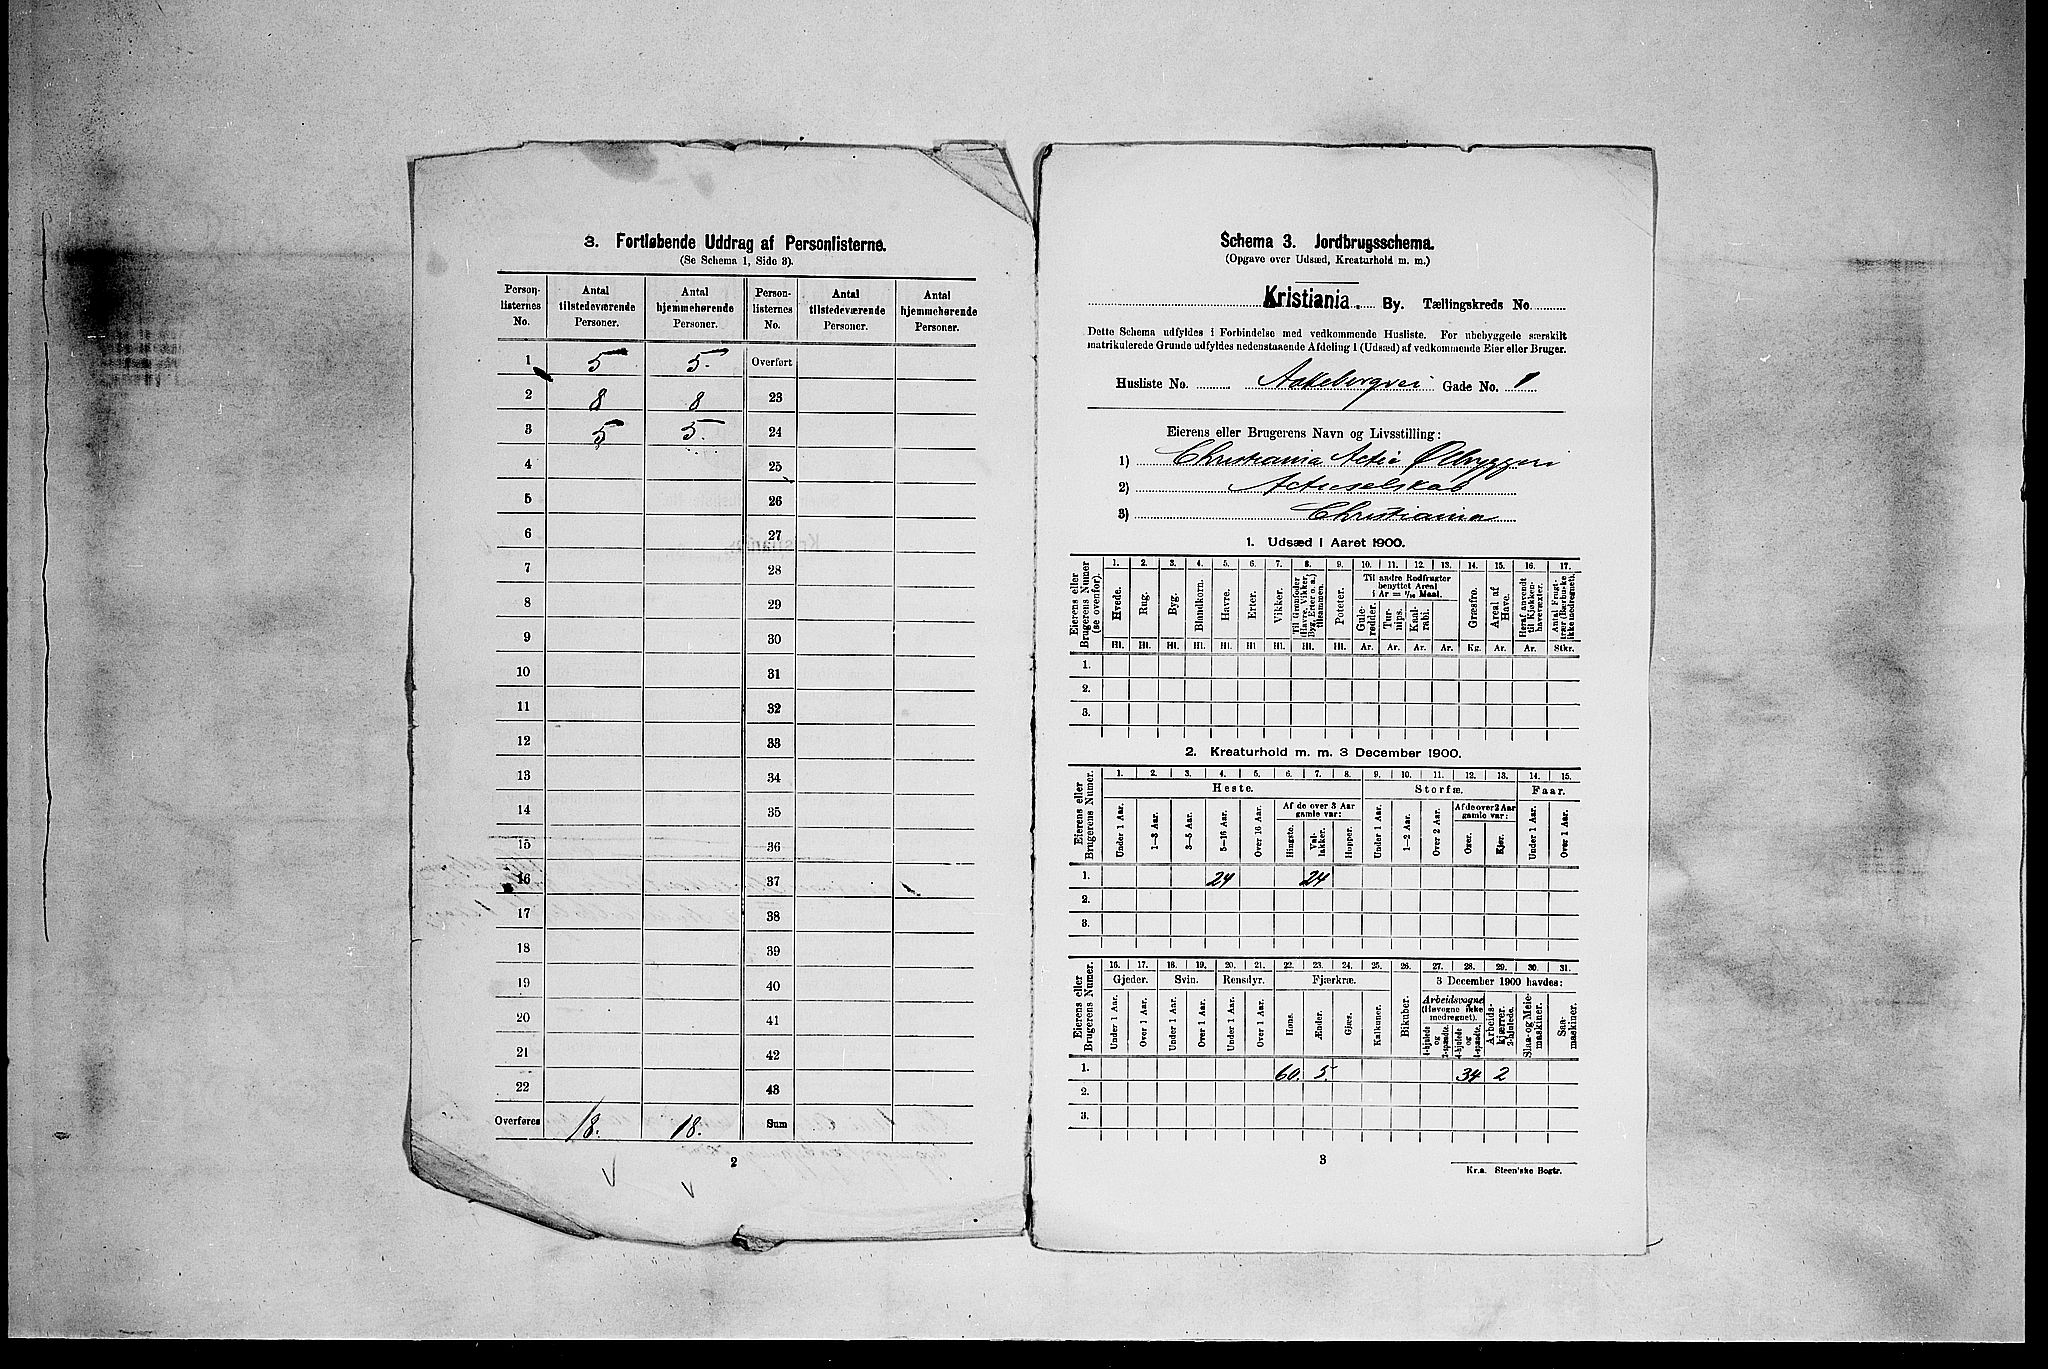 3. Fortløbende Uddrag af Personlisterne.
(Se Schema 1, Side 3).
Person-listernes No. | Antal tilstedeværende Personer. | Antal hjemmehørende Personer. | Person-listernes No. | Antal tilstedeværende Personer. | Antal hjemmehørende Personer.
1 5 5. Overført
2 8 8 23
3 5 5. 24
4 25
5 26
6 27
7 28
8 29
9 30
10 31
11 32
12 33
13 34
14 35
15 36
16 37
17 38
18 39
19 40
20 41
21 42
22 43
Overføres 18. 18. Sum
2
Schema 3. Jordbrugsschema.
(Opgave over Udsæd, Kreaturhold m. m.)
Kristiania. By. Tællingskreds No.
Dette Schema udfyldes i Forbindelse med vedkommende Husliste. For ubebyggede særskilt
matrikulerede Grunde udfyldes nedenstaaende Afdeling 1 (Udsæd) af vedkommende Eier eller Bruger.
Husliste No. Aakebergvei Gade No. 1
Eierens eller Brugerens Navn og Livsstilling:
1) Christiania Actie Ølbryggeri
2) Actieselskab
3) Christiania
1. Udsæd i Aaret 1900.
Eierens eller Brugerens Numer (se ovenfor).
1. 2. 3. 4. 5. 6. 7. 8. 9. 10. 11. 12. 13. 14. 15. 16. 17.
Til andre Rodfrugter benyttet Areal i Ar = 1/10 Maal.
Hvede. Rug. Byg. Blandkorn. Havre. Erter. Vikker. Til Grønfoder (Havre, Vikker, Byg, Erter o. a.) tilsammen. Poteter. Gulerødder. Turnips. Kaalrabi. Græsfrø. Areal af Have. Heraf anvendt til Kjøkkenhavevæxter. Antal Frugttrær (Bærbuske ikke medregnet).
Hl. Hl. Hl. Hl. Hl. Hl. Hl. Hl. Hl. Ar. Ar. Ar. Ar. Kg. Ar. Ar. Stkr.
1.
2.
3.
2. Kreaturhold m. m. 3 December 1900.
Eierens eller Brugerens Numer.
1. 2. 3. 4. 5. 6. 7. 8. 9. 10. 11. 12. 13. 14. 15.
Heste. Storfæ. Faar.
Af de over 3 Aar gamle var: Af de over 2 Aar gamle var:
Under 1 Aar. 1—3 Aar. 3—5 Aar. 5—16 Aar. Over 16 Aar. Hingste. Vallakker. Hopper. Under 1 Aar. 1—2 Aar. Over 2 Aar. Oxer. Kjør. Under 1 Aar. Over 1 Aar.
1. 24 24
2.
3.
Eierens eller Brugerens Numer.
16. 17. 18. 19. 20. 21. 22. 23. 24. 25. 26. 27. 28. 29. 30. 31.
Gjeder. Svin. Rensdyr. Fjærkræ. 3 December 1900 havdes:
Arbeidsvogne (Høvogne ikke medregnet).
Under 1 Aar. Over 1 Aar. Under 1 Aar. Over 1 Aar. Under 1 Aar. Over 1 Aar. Høns. Ænder. Gjæs. Kalkuner. Bikuber. 4-hjulede og 2-spændte. 4-hjulede og 1-spændte. Arbeidskjærrer. 2-hjulede. Slaa- og Meiemaskiner. Saamaskiner.
1. 60. 5. 34 2
2.
3.
3
Kr.a. Steen'ske Bogtr.